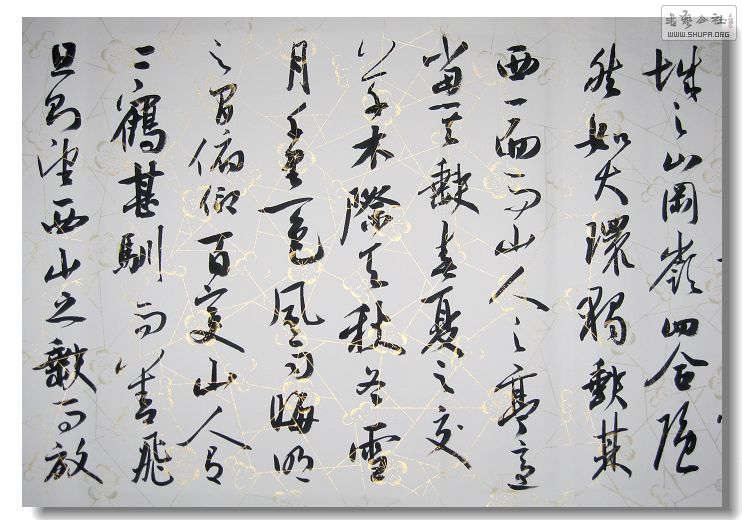 城之山岡嶺四合隱
然如大環獨缺其
西一面而山人之亭適
當其缺春夏之交
草木際天秋冬雪
月千里一色風雨晦明
之間俯仰百變山人有
二鶴甚馴而善飛
旦則望西山之缺而放
书艺公社
WWW.SHUFA.ORG